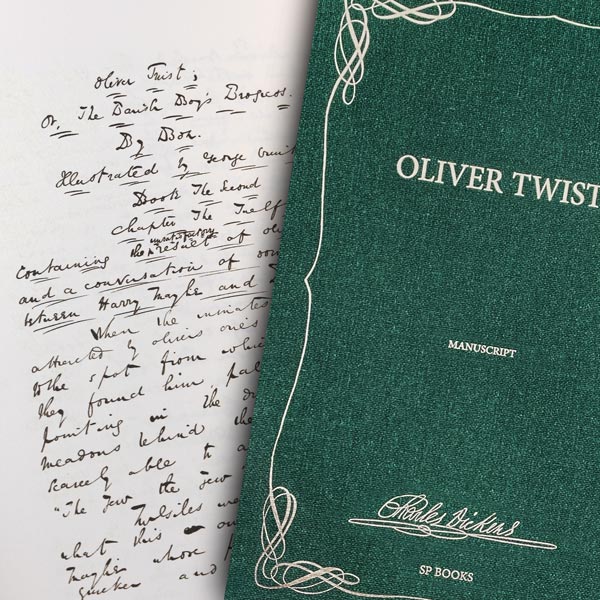 Oliver Twist;
Or, The Parish Boy's Progress.
By Boz.
Illustrated by George Cruik
Book The Second
Chapter The Twelf
unsatisfactory
Containing the result of oli
and a conversation of
between Harry Maylie and
When the inmates
attracted by olivers cries
to the spot from whic
they found him, pal
pointing in the
meadows behind the
scarcely able to a
"The Jew the Jew
what this
Maylie whose
quicker and
OLIVER TWIST
MANUSCRIPT
Charles Dickens
SP BOOKS